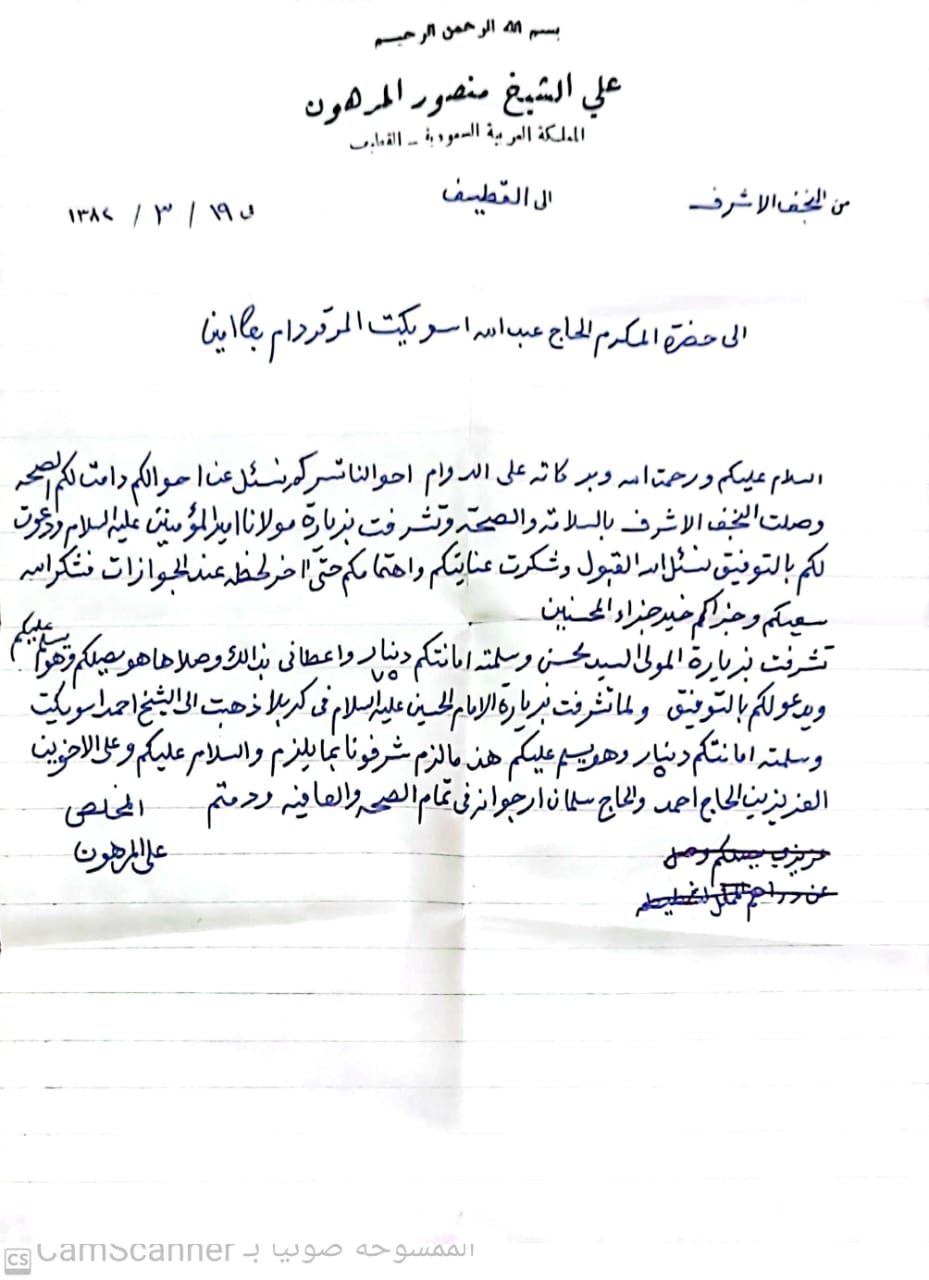 بسم الله الرحمن الرحيم
علي الشيخ منصور المرهون
المملكة العربية السعودية - القطيف
من النجف الاشرف الى القطيف في ١٩ / ٣ / ١٣٨٢
الى حضرة المكرم الحاج عبدالله اسويكت الموقر دام بقاه امين
السلام عليكم ورحمت الله وبركاته على الدوام احوالنا تسركم نسئل عن احوالكم دامت لكم الصحه
وصلت النجف الاشرف بالسلامه والصحه وتشرفت بزيارة مولانا امير المؤمنين عليه السلام ودعوت
لكم بالتوفيق نسئل الله القبول وشكرت عنايتكم واهتمامكم حتى اخر لحظه عند الجوازات فشكر الله
سعيكم وجزاكم خير جزاء المحسنين
تشرفت بزيارة المولى السيد محسن وسلمته امانتكم دينار ٧٥ واعطاني بذالك وصلا ها هو يصلكم وهو يسلم عليكم
ويدعو لكم بالتوفيق ولما تشرفت بزيارة الامام الحسين عليه السلام في كربلا ذهبت الى الشيخ احمد اسويكت
وسلمته امانتكم دينار وهو يسلم عليكم هذا مالزم شرفونا بما يلزم والسلام عليكم وعلى الاخوين
العزيزين الحاج احمد والحاج سلمان ارجو انه في تمام الصحه والعافيه ودمتم
المخلص
علي المرهون
عزيزي يصلكم وصل
الممسوحة ضوئيا بـ CamScanner
CS